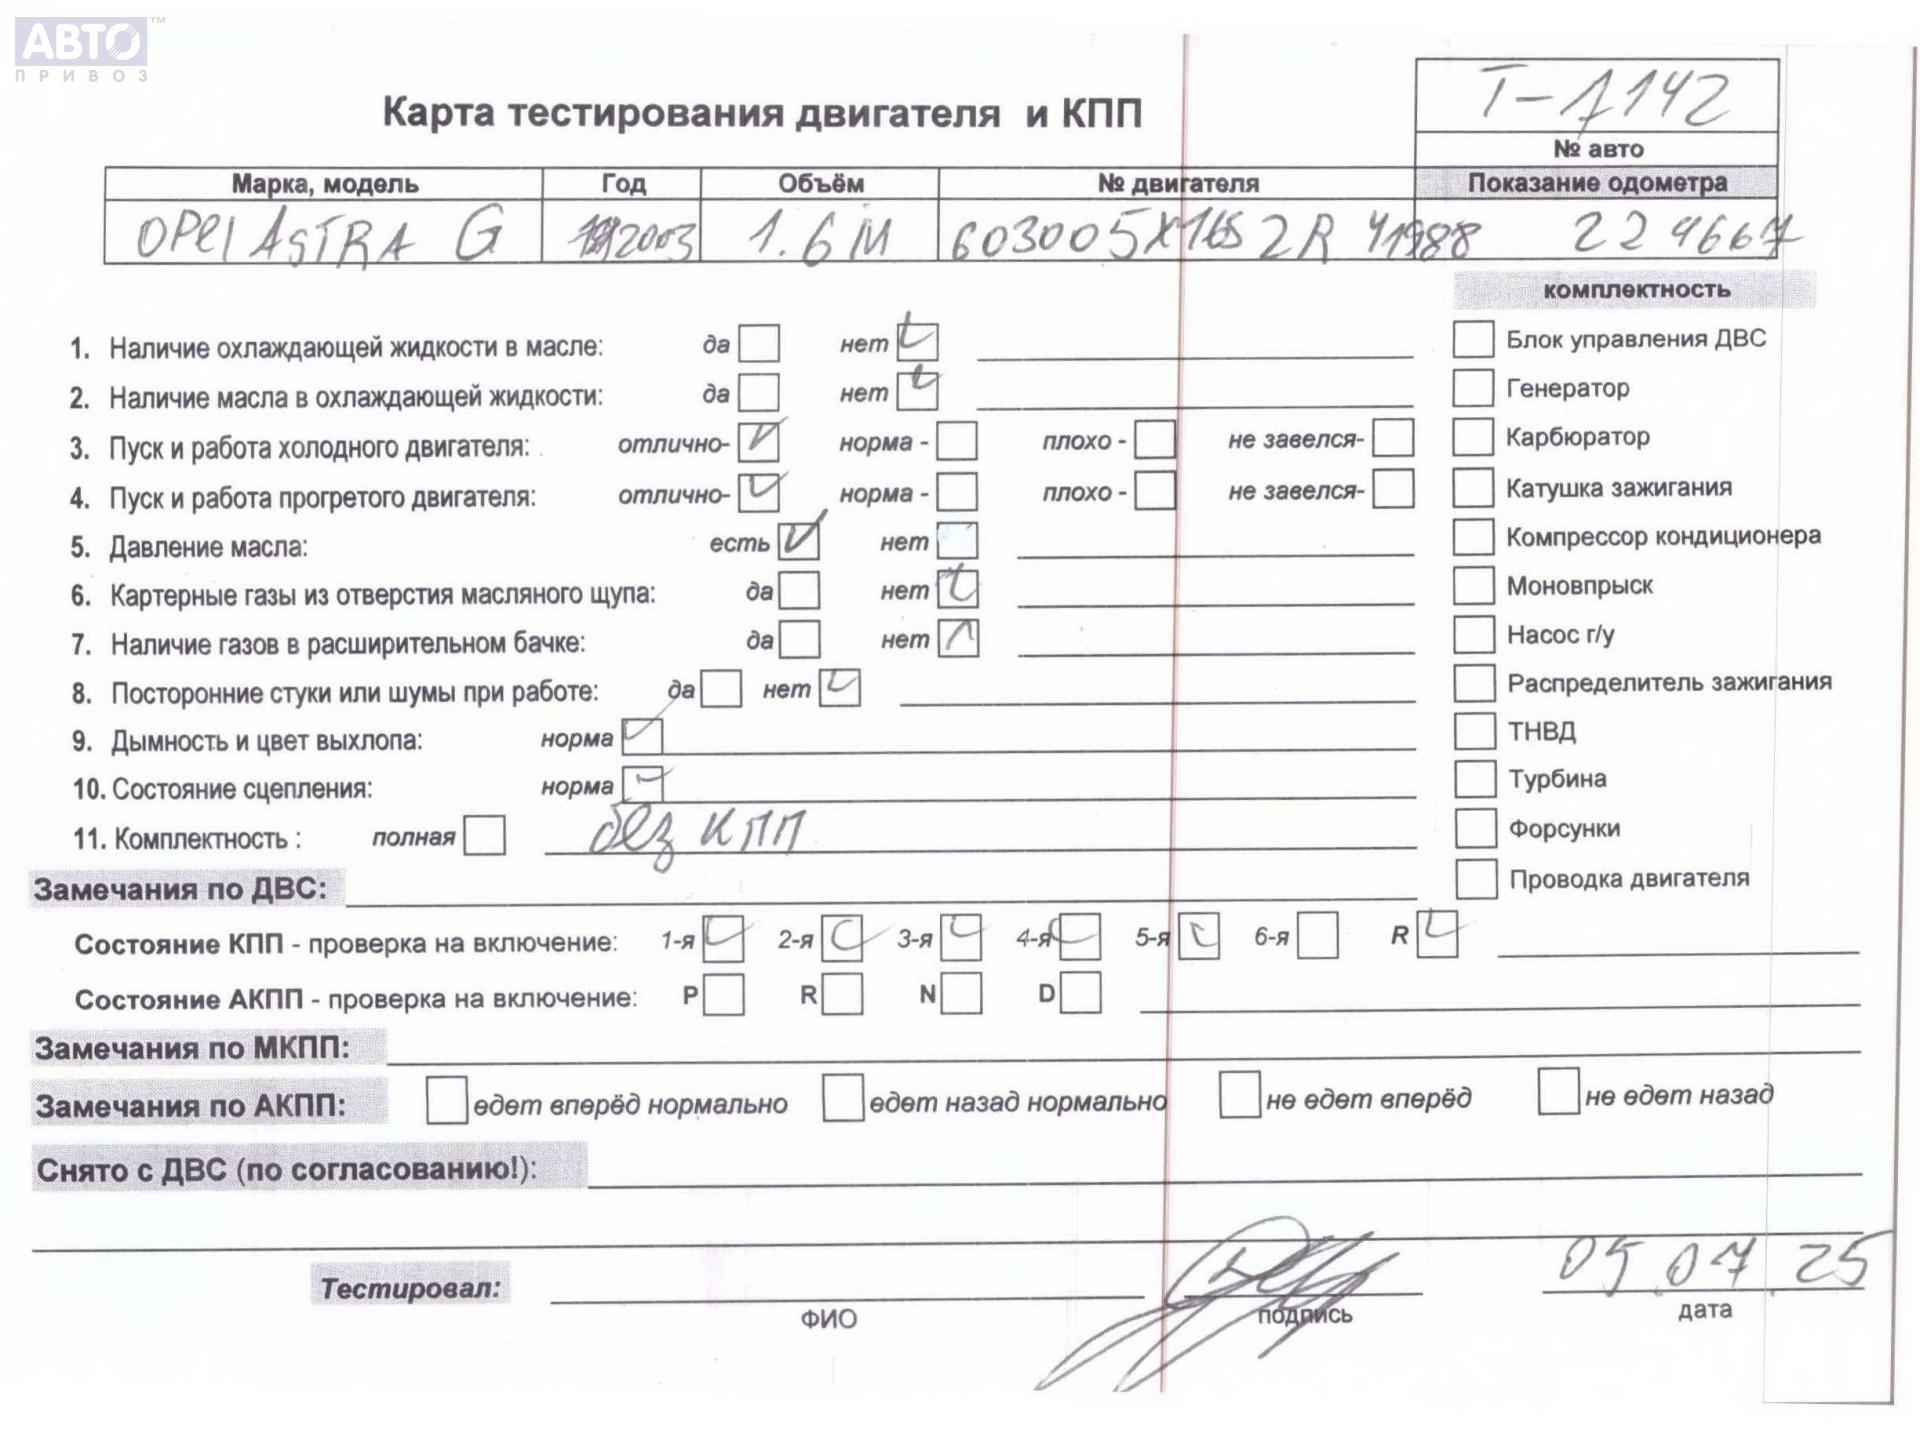 АВТО™
ПРИВОЗ
Т-7142
Карта тестирования двигателя и КПП
№ авто
Марка, модель Год Объём № двигателя Показание одометра
OPel ASTRA G 2003 1.6 М 224667
комплектность
1. Наличие охлаждающей жидкости в масле: да нет Блок управления ДВС
2. Наличие масла в охлаждающей жидкости: да нет Генератор
3. Пуск и работа холодного двигателя: отлично- норма - плохо - не завелся- Карбюратор
4. Пуск и работа прогретого двигателя: отлично- норма - плохо - не завелся- Катушка зажигания
5. Давление масла: есть нет Компрессор кондиционера
6. Картерные газы из отверстия масляного щупа: да нет Моновпрыск
7. Наличие газов в расширительном бачке: да нет Насос г/у
8. Посторонние стуки или шумы при работе: да нет Распределитель зажигания
9. Дымность и цвет выхлопа: норма ТНВД
10. Состояние сцепления: норма Турбина
11. Комплектность : полная без КПП Форсунки
Замечания по ДВС: Проводка двигателя
Состояние КПП - проверка на включение: 1-я 2-я 3-я 4-я 5-я 6-я R
Состояние АКПП - проверка на включение: P R N D
Замечания по МКПП:
Замечания по АКПП: едет вперёд нормально едет назад нормально не едет вперёд не едет назад
Снято с ДВС (по согласованию!):
Тестировал: 05.07.25
ФИО подпись дата